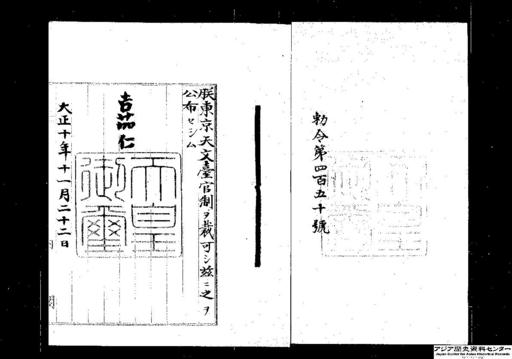 勅令第四百五十號
朕東京天文臺官制ヲ裁可シ茲ニ之ヲ
公布セシム
嘉仁
天皇
御璽
大正十年十一月二十二日
アジア歴史資料センター
Japan Center for Asian Historical Records